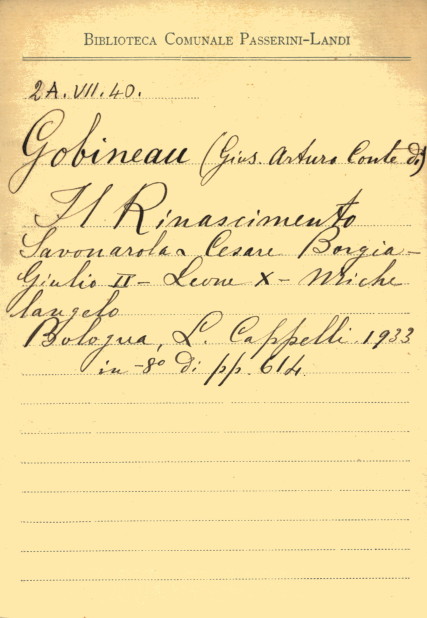 BIBLIOTECA COMUNALE PASSERINI-LANDI
2A.VII.40.
Gobineau (Gius. Arturo Conte di)
Il Rinascimento
Savonarola - Cesare Borgia -
Giulio II - Leone X - Miche
langelo
Bologna, L. Cappelli. 1933
in -8º di pp. 614.